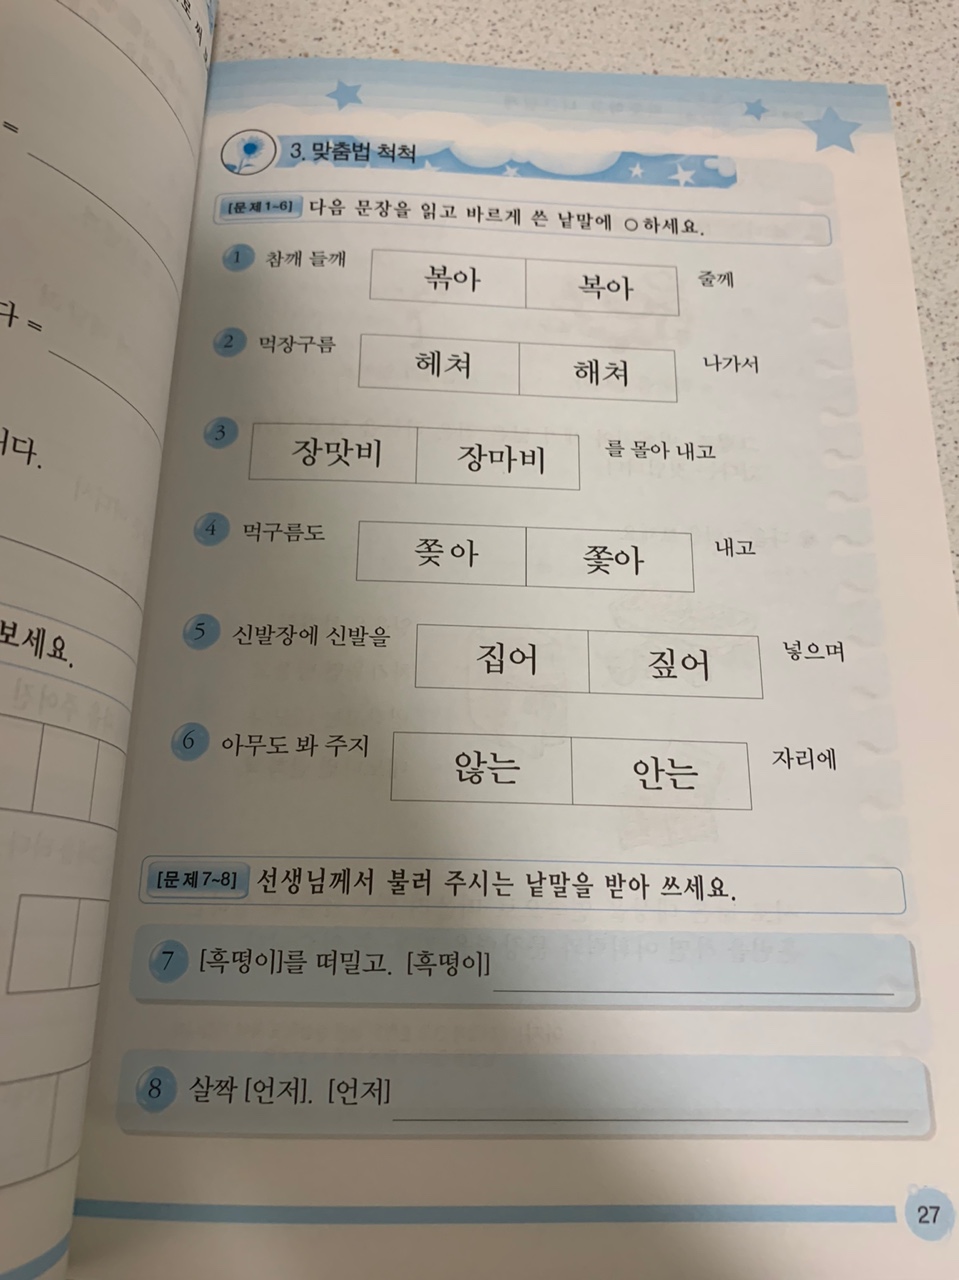 =
다 =
니다.
보세요.
3. 맞춤법 척척
[문제1~6] 다음 문장을 읽고 바르게 쓴 낱말에 ○하세요.
1 참깨 들깨 볶아 복아 줄께
2 먹장구름 헤쳐 해쳐 나가서
3 장맛비 장마비 를 몰아 내고
4 먹구름도 쫒아 쫓아 내고
5 신발장에 신발을 집어 짚어 넣으며
6 아무도 봐 주지 않는 안는 자리에
[문제7~8] 선생님께서 불러 주시는 낱말을 받아 쓰세요.
7 [흑떵이]를 떠밀고. [흑떵이]
8 살짝 [언저]. [언저]
27